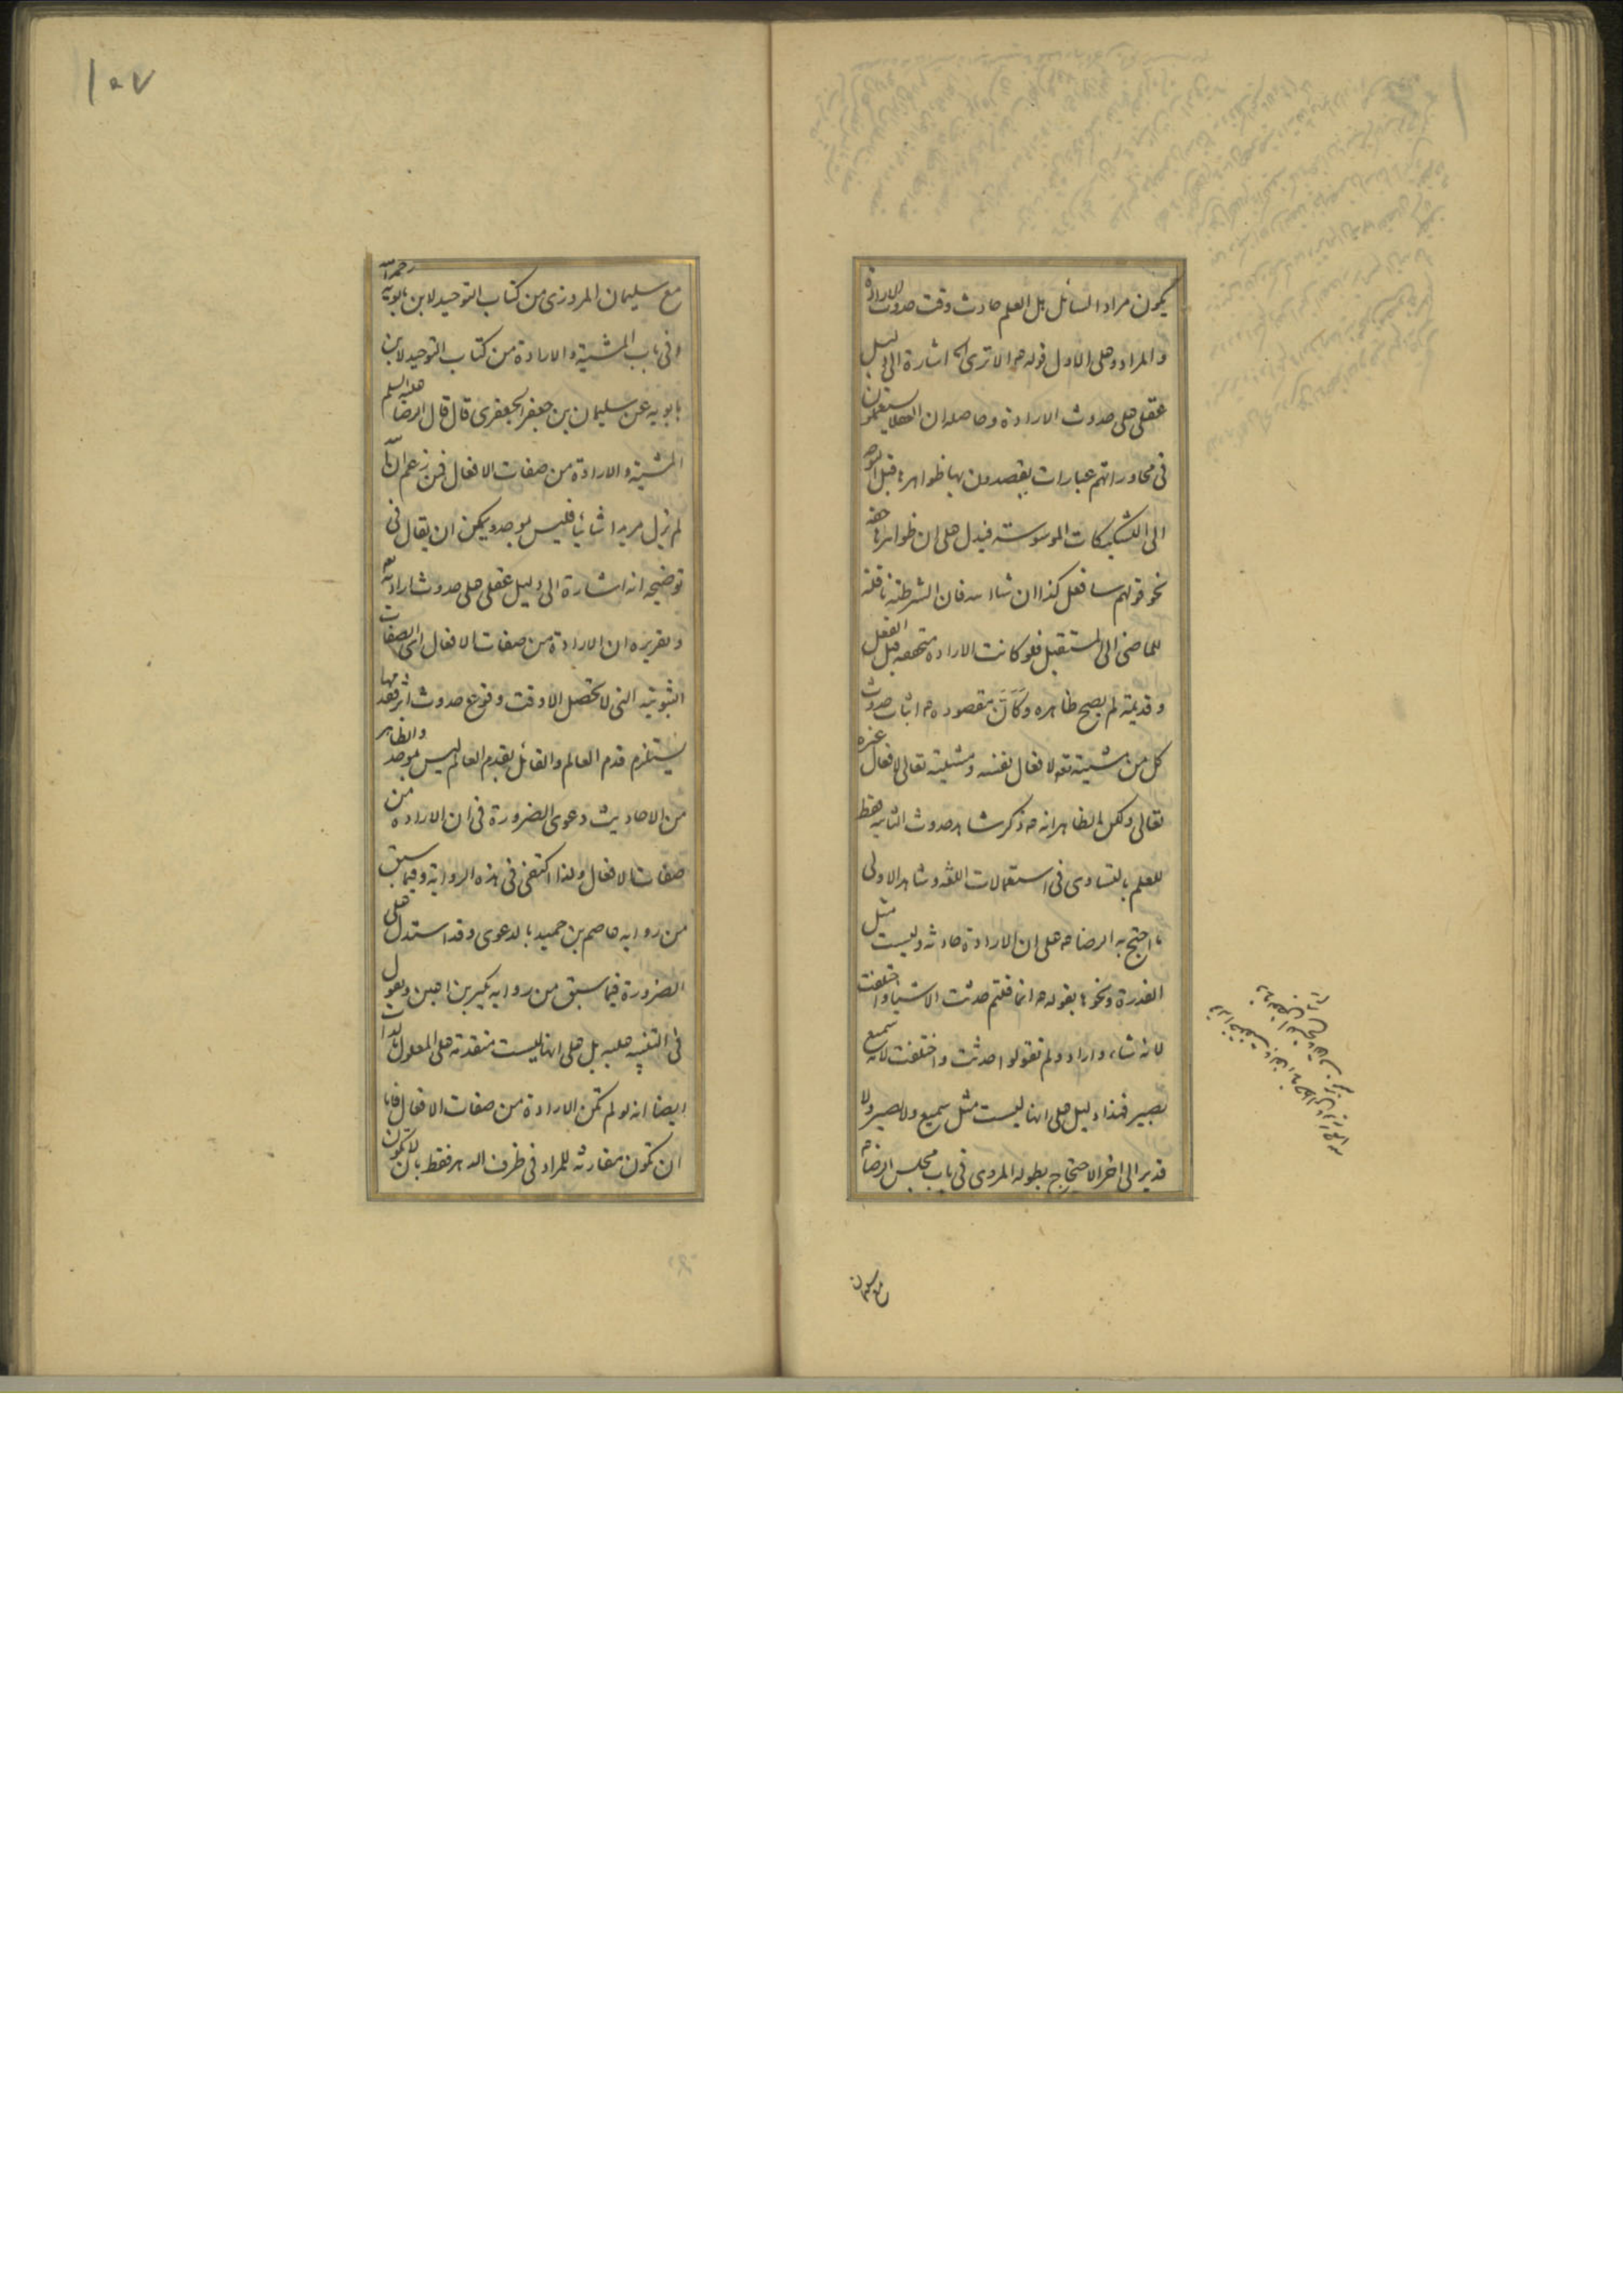 يكون مراد السائل بل العلم حادث وقت حدوث الارادة
والمراد وعلى الاول قوله ع الا ترى الخ اشارة الى دليل
عقلى على حدوث الارادة وحاصله ان العقلا يستعملون
فى محاوراتهم عبارات يقصدون بها ظواهرها قبل التوجه
الى التشكيكات الموسوسة فيدل على ان ظواهرها حقة
نحو قولهم سافعل كذا ان شاء الله فان الشرطية ناقلة
للماضى الى المستقبل فلو كانت الارادة متحققة قبل الفعل
وقديمة لم يصح ظاهره وكان مقصوده ع اثبات حدوث
كل من مشيته تعه لافعال نفسه ومشيته تعالى لافعال غيره
تعالى ولكن الظاهر انه ع ذكر شاهد حدوث الثانية فقط
للعلم بالتساوى فى استعمالات اللغة وشاهد الاولى
ما احتج به الرضا ع على ان الارادة حادثه وليست مثل
القدرة ونحوها بقوله ع انما قلتم حدثت الاشيا واختلفت
لانه شاء واراد ولم تقولوا حدثت واختلفت لانه سميع
بصير فهذا دليل على انها ليست مثل سميع ولا بصير ولا
قدير الى اخر الاحتجاج بطوله المروى فى باب مجلس الرضا ع
مع سليمان
١٥٧
مع سليمان المروزى من كتاب التوحيد لابن بابويه رحمه الله
وفى باب المشية والارادة من كتاب التوحيد لابن
بابويه عن سليمان بن جعفر الجعفرى قال قال الرضا عليه السلم
المشية والارادة من صفات الافعال فمن زعم ان الله
لم يزل مريدا شائيا فليس بموحد ويمكن ان يقال فى
توضيحه انه اشارة الى دليل عقلى على حدوث ارادته تعه
وتقريره ان الارادة من صفات الافعال اى الصفات
الثبوتية التى لا تحصل الا وقت وقوع حدوث اثر فقدمها
يستلزم قدم العالم والقائل بقدم العالم ليس بموحد والظاهر
من الاحاديث دعوى الضرورة فى ان الارادة من
صفات الافعال ولذا اكتفى فى هذه الرواية وفيما سبق
من رواية عاصم بن حميد بالدعوى وقد استدل على
الضرورة فيما سبق من رواية بكير بن اعين ونقول
فى التنبيه عليه بل على انها ليست متقدمة على المعلول بالذات
ايضا انه لو لم تكن الارادة من صفات الافعال فاما
ان تكون مقارنة للمراد فى ظرف الدهر فقط بان لا تكون